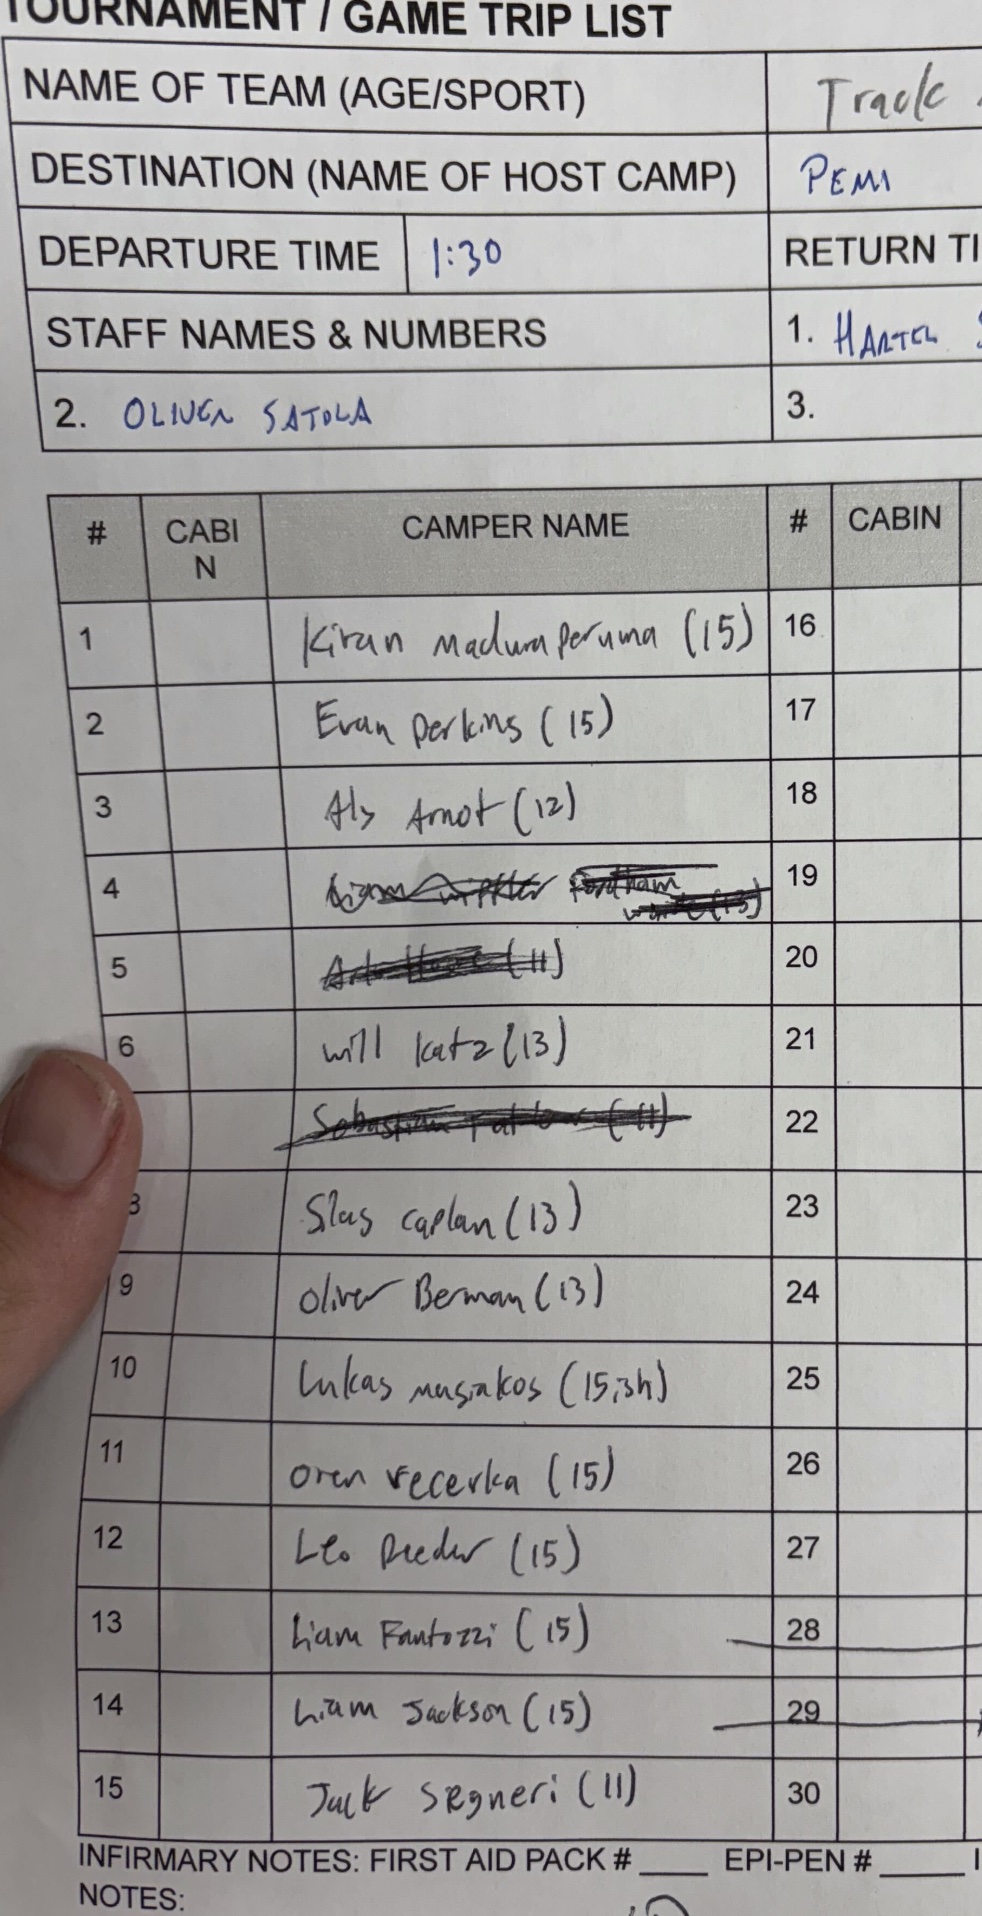 TOURNAMENT / GAME TRIP LIST
NAME OF TEAM (AGE/SPORT) Track
DESTINATION (NAME OF HOST CAMP) PEMI
DEPARTURE TIME 1:30 RETURN TI
STAFF NAMES & NUMBERS 1. HARTEL S
2. OLIVER SATOLA 3.
# CABIN CAMPER NAME # CABIN
1 Kiran Maduraperuma (15) 16
2 Evan perkins (15) 17
3 Arnot (12) 18
4 Fordham (13) 19
5 (11) 20
6 will katz (13) 21
Sebastian (11) 22
8 Silas caplan (13) 23
9 oliver Berman (13) 24
10 Lukas musiakos (15,3h) 25
11 oren vecerka (15) 26
12 Leo Reeder (15) 27
13 Liam Fantozzi (15) 28
14 Liam Jackson (15) 29
15 Jack segneri (11) 30
INFIRMARY NOTES: FIRST AID PACK # ____ EPI-PEN # ____ I
NOTES: